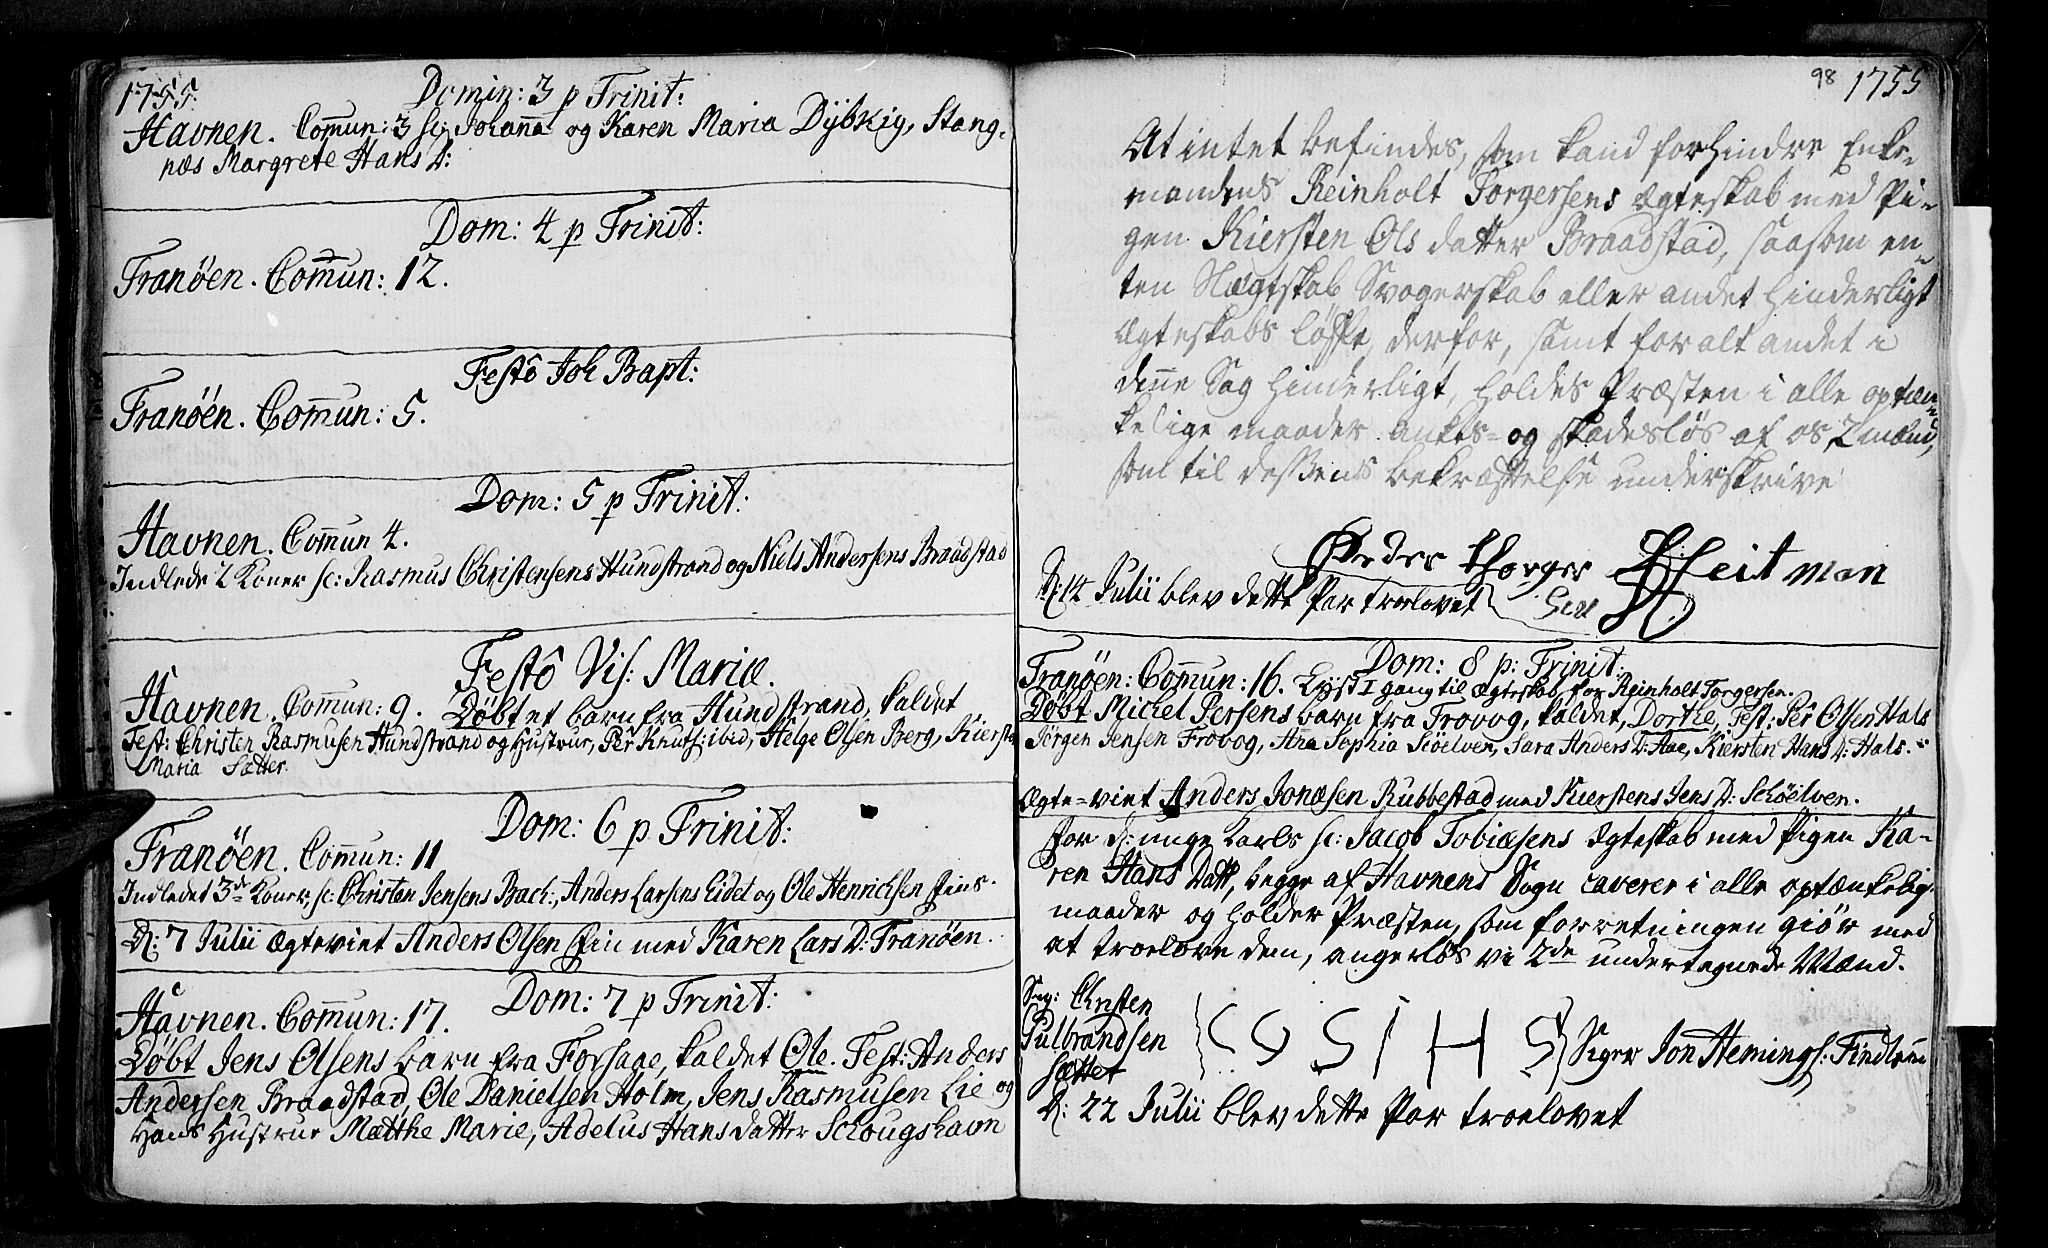 1755.
Domin: 3 p Trinit:
Havnen. Comun: 3 sc: Johana og Karen Maria Dybvig, Stang-
næs Margrete Hans D:
Dom: 4 p Trinit:
Tranöen. Comun: 12.
Festô Joh Bapt:
Tranöen. Comun: 5.
Dom: 5 p Trinit:
Havnen. Comun 4.
Indlede 2 Koner sc: Rasmus Christensens Hundstrand og Niels Andersens Braadstad
Festô Vis: Mariæ.
Havnen. Comun: 9. Döbt et barn fra Hundstrand, kaldet
Test: Christen Rasmusen Hundstrand og Hustrue, Per Knuts: ibid, Helge Olsen Berg, Kiersten
Maria Sætter.
Dom: 6 p Trinit:
Tranöen. Comun: 11
Indledet 3de Koner, sc: Christen Jensens Bach:, Anders Larsens Eidet og Ole Henrichsen
D: 7 Julii Ægteviet Anders Olsen med Karen Lars D: Tranöen.
Dom: 7 p Trinit:
Havnen. Comun: 17.
Döbt Jens Olsens barn fra Forsaae, kaldet Ole. Test: Anders
Andersen Braadstad, Ole Danielsen Holm, Jens Rasmusen Lie og
Hans Hustrue Mætthe Marie, Adelus Hansdatter Schougshavn
98 1755
At intet befindes, som kand forhindre Enke-
mandens Reinholt Torgersens Ægteskab med Pi-
gen Kiersten Ols datter Braadstad, saasom en-
ten Slægtskab, Svogerskab eller andet hinderligt
Ægteskabs løfte, derfor, samt for alt andet i
dene Sag hinderligt, holdes Præsten i alle optæn-
kelige maader ankes- og skadesløs af os 2 mænd,
som til dessens bekræftelse underskrive
Peder Thorger Heitman
Sen
D: 14 Julii blev dette Par troelovet
Dom: 8 p: Trinit:
Tranöen: Comun: 16. Lyst 1 gang til Ægteskab for Reinholt Torgersen.
Döbt Michel Persens barn fra Frovog, kaldet, Dorthe, Test: Per Olsen Hals
Jørgen Jensen Frovog, Ana Sophia Sciöelven, Sara Anders D: Aae, Kiersten Hans D: Hals.
Ægte-viet Anders Jonæsen Rubbestad med Kierstens Jens D: Schöelven.
For d: unge Karls sc: Jacob Tobiæsens Ægteskab med Pigen Ka-
ren Hans Datt, begge af Havnens Sogn caverer i alle optænkelig
maader og holder Præsten, som forretningen giör med
at troelove dem, angerløs vi 2de undertegnede Mænd.
Sig: Christen
Gulbrandsen
Sættet
C G S I H S
Siger Jon Hemings: Findlund
D: 22 Julii blev dette Par troelovet